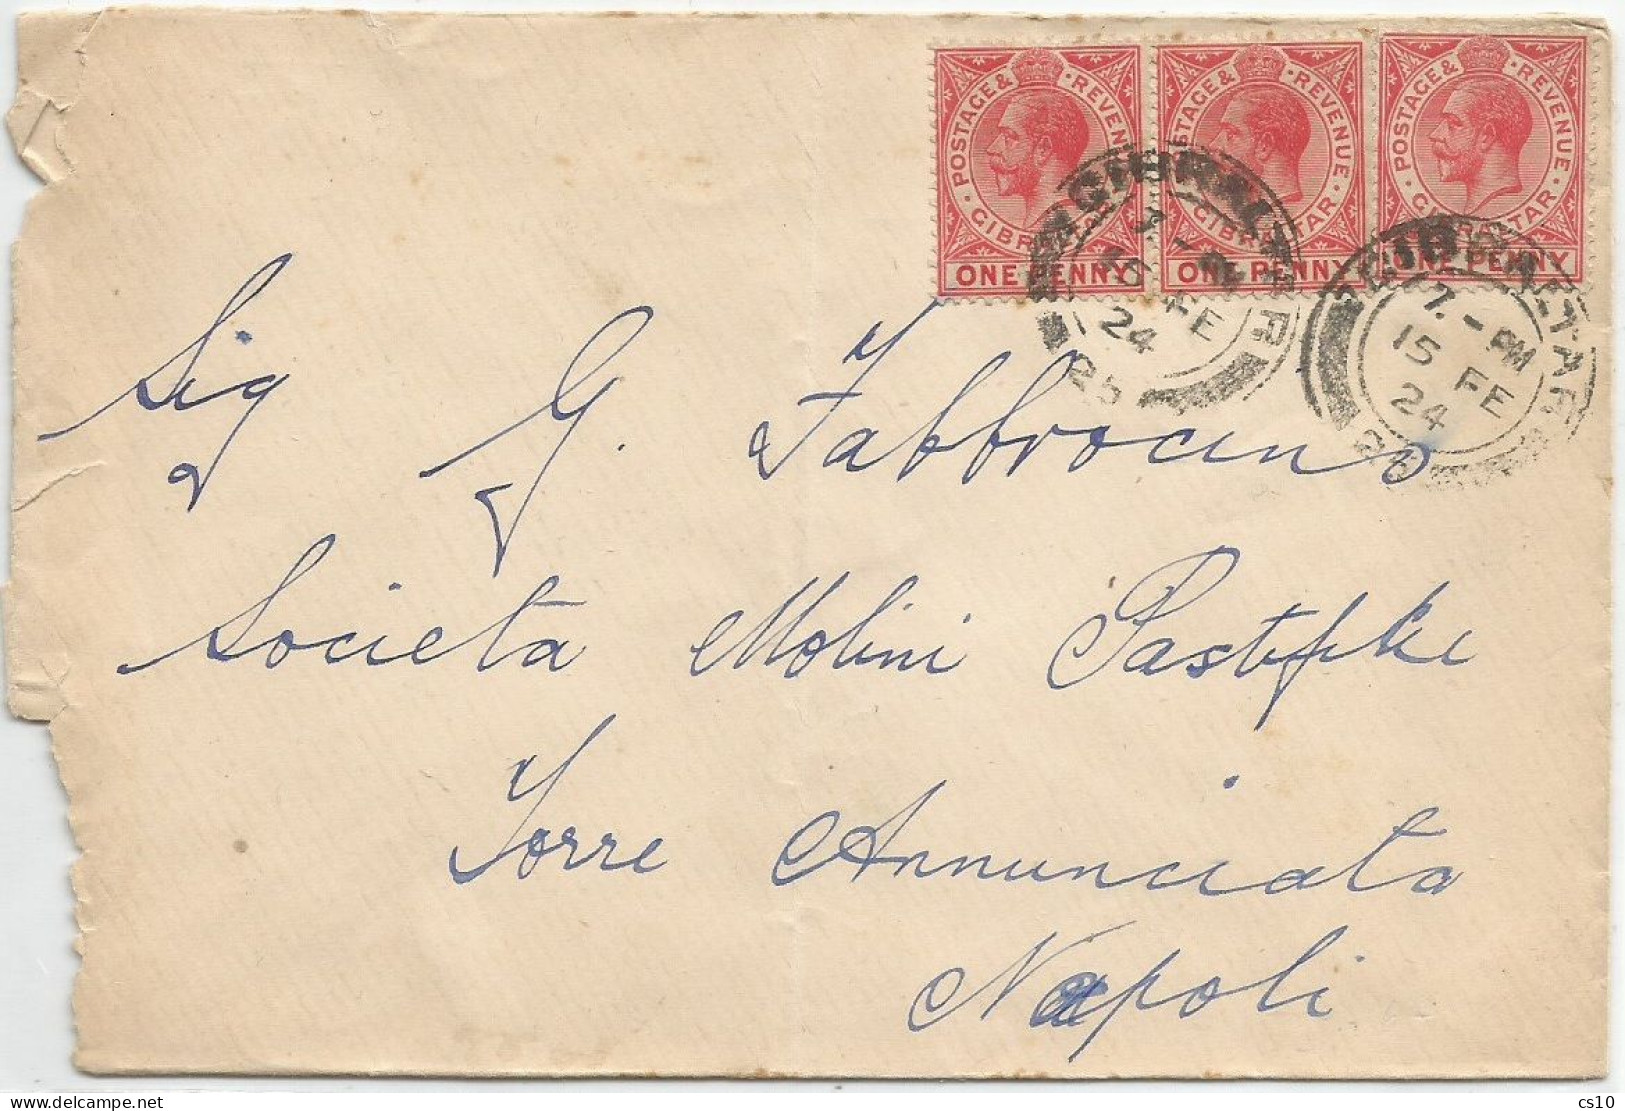 POSTAGE & REVENUE
GIBRALTAR
ONE PENNY
POSTAGE & REVENUE
GIBRALTAR
ONE PENNY
POSTAGE & REVENUE
GIBRALTAR
ONE PENNY
GIBRALTAR
FE
24
25
GIBRALTAR
7. - PM
15 FE
24
Sig G. Fabbrocino
Societa Molini Pastifiche
Torre Annunciata
Napoli
cs10